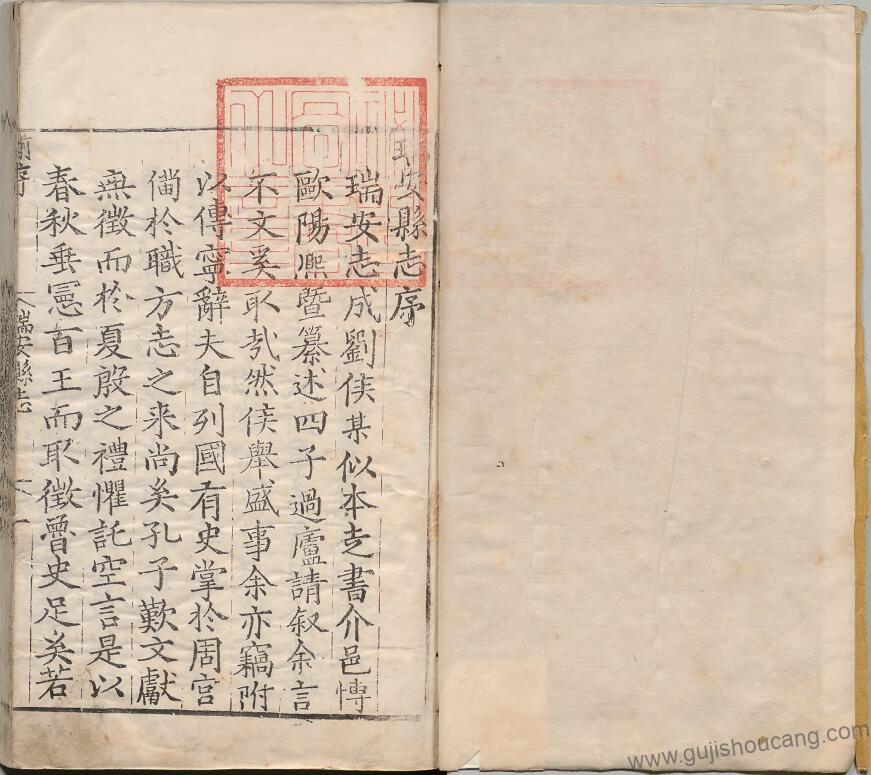 瑞安縣志序
瑞安志成劉侯某似本走書介邑博
歐陽熈暨纂述四子過廬請叙余言
不文奚取㢤然侯舉盛事余亦竊附
以傳寧辭夫自列國有史掌於周官
僃於職方志之来尚矣孔子歎文獻
無徵而於夏殷之禮懼託空言是以
春秋垂憲百王而取徵魯史足矣若
瑞安縣志
一
www.gujishoucang.com